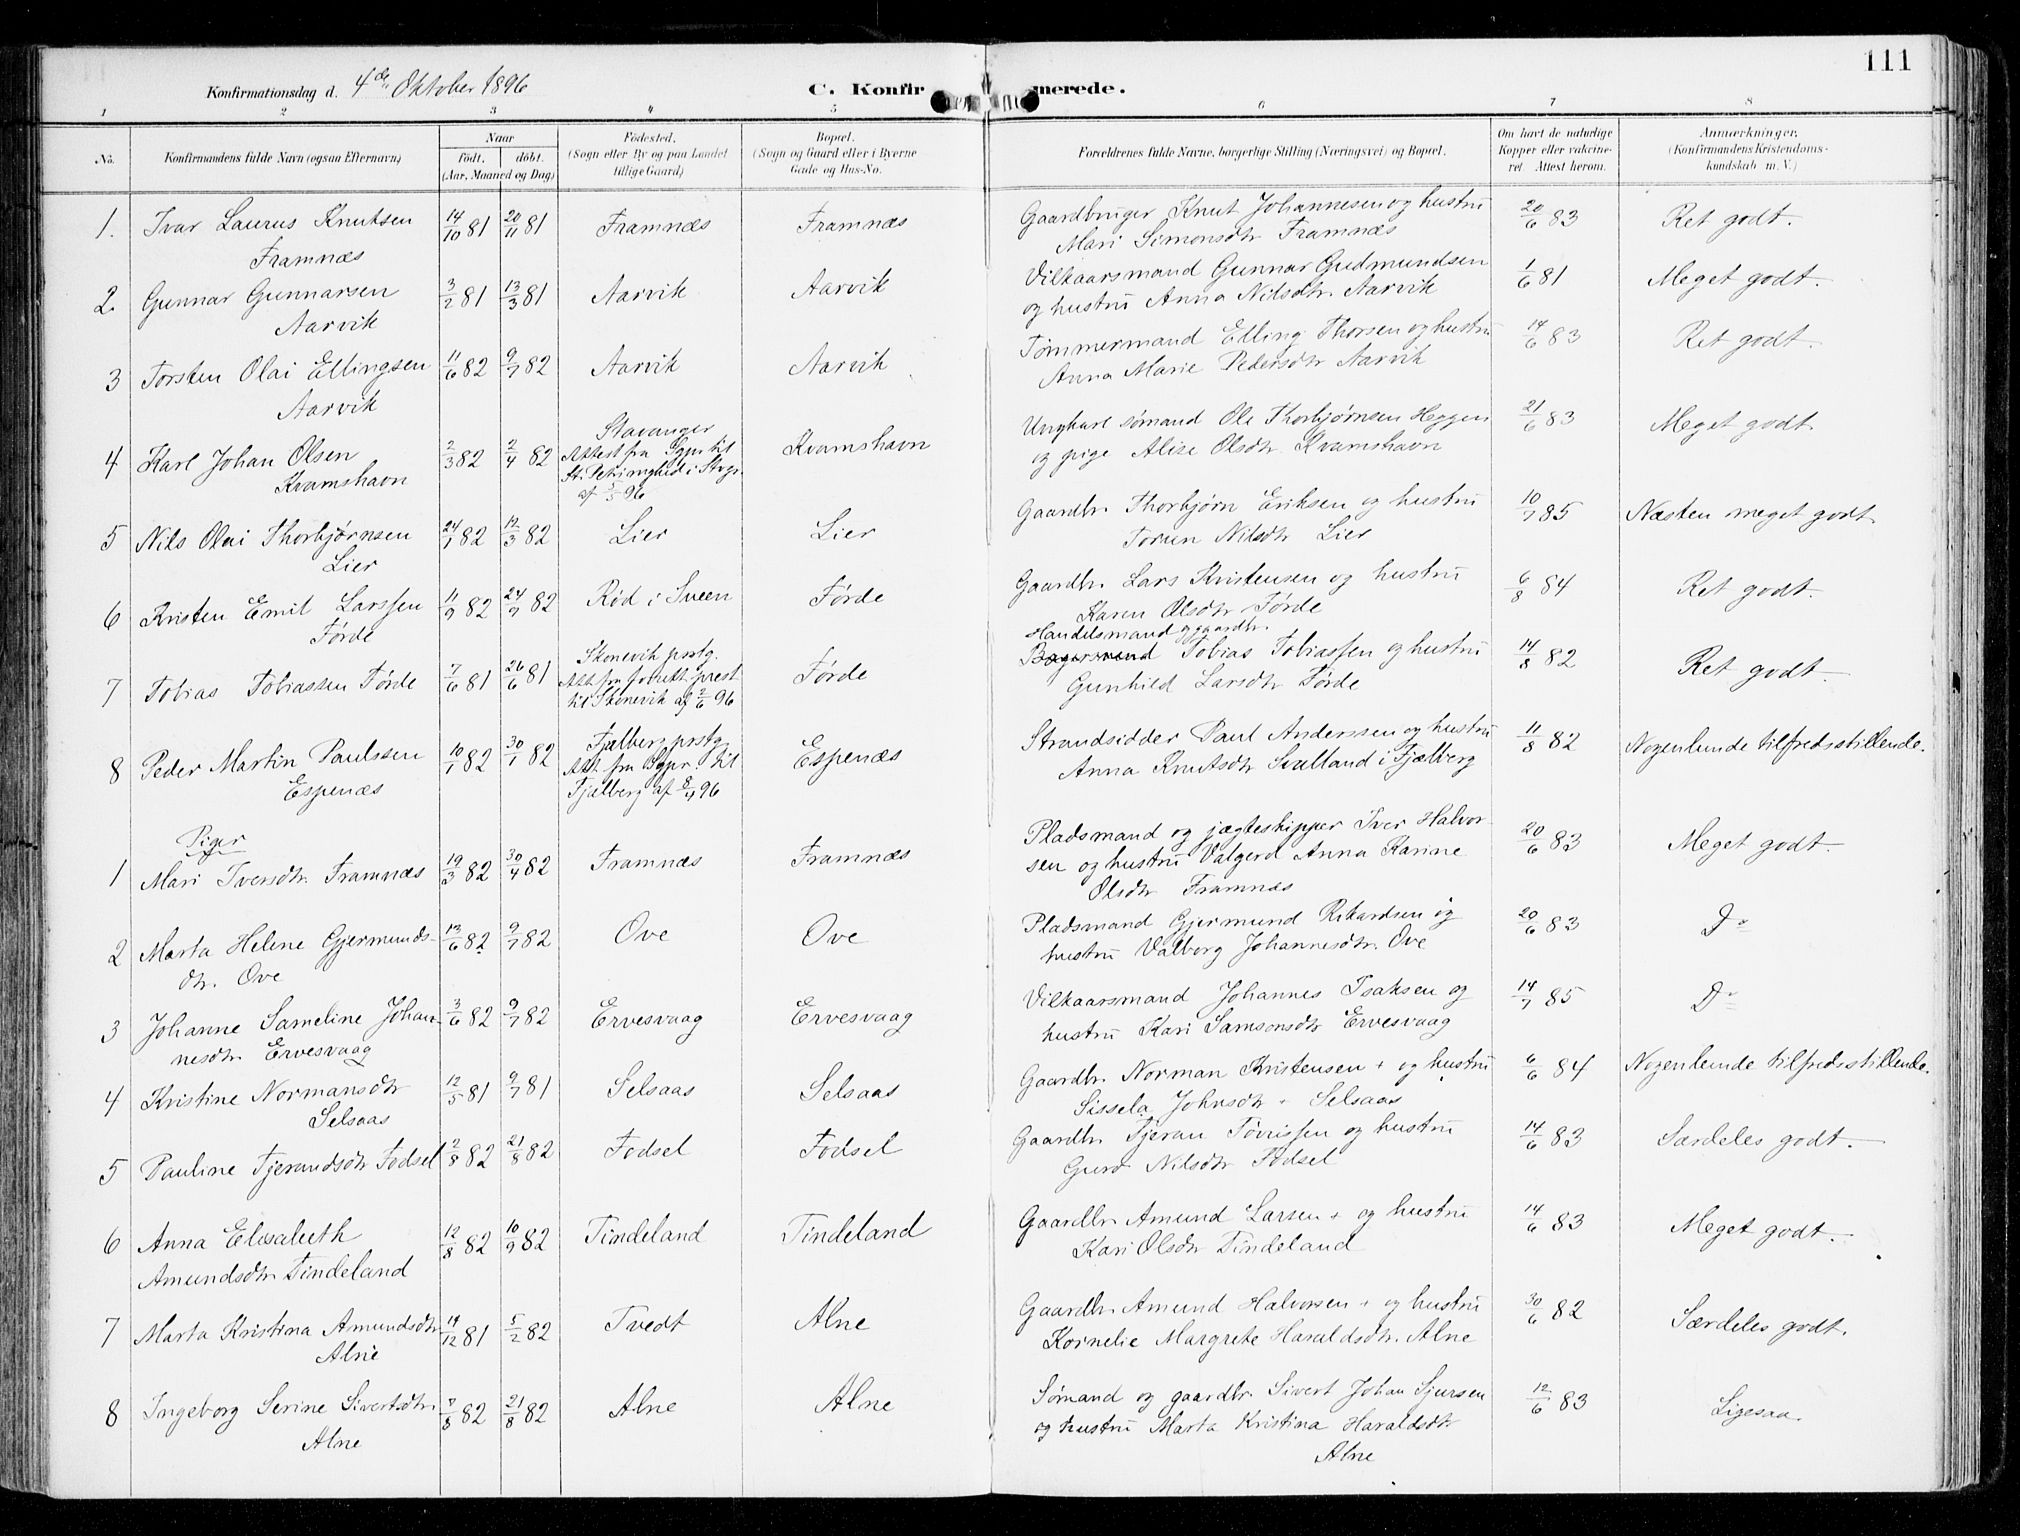 111
Konfirmationsdag d. 4de Oktober 1896
C. Konfirmerede.
1 2 3 4 5 6 7 8
No. Konfirmandens fulde Navn (ogsaa Efternavn) Naar født. døbt. (Aar, Maaned og Dag) Fødested. (Sogn eller By og paa Landet tillige Gaard) Bopæl. (Sogn og Gaard eller i Byerne Gade og Hus-No. Forældrenes fulde Navne, borgerlige Stilling (Næringsvei) og Bopæl. Om havt de naturlige Kopper eller vakcineret. Attest herom. Anmærkninger. (Konfirmandens Kristendomskundskab m. V.)
1. Ivar Laurus Knutsen 14/10 81 20/11 81 Framnæs Framnæs Gaardbruger Knut Johannesen og hustru 20/6 83 Ret godt.
Framnæs Mari Simonsdtr Framnæs
2. Gunnar Gunnarsen 3/2 81 13/3 81 Aarvik Aarvik Vilkaarsmand Gunnar Gudmundsen 1/6 81 Meget godt.
Aarvik og hustru Anna Nilsdtr. Aarvik
3 Torsten Olai Ellingsen 11/6 82 9/7 82 Aarvik Aarvik Tømmermand Elling Thorsen og hustru 14/6 83 Ret godt.
Aarvik Anna Marie Pedersdtr Aarvik
4 Karl Johan Olsen 2/3 82 2/4 82 Stavanger Kvamshavn Ungkarl sømand Ole Thorbjørnsen Heggen 21/6 83 Meget godt.
Kvamshavn Attest fra Sgpr. til St. Petri menighed i Stvgr. af 5/5 96 og pige Alise Olsdtr. Kvamshavn
5 Nils Olai Thorbjørnsen 24/1 82 12/3 82 Lier Lier Gaardbr. Thorbjørn Eriksen og hustru 10/7 85 Næsten meget godt
Lier Torun Nilsdtr Lier
6 Kristen Emil Larssen 11/9 82 24/9 82 Rød i Sveen Førde Gaardbr. Lars Kristensen og hustru 6/8 84 Ret godt.
Førde Karen Olsdtr Førde
7 Tobias Tobiassen Førde 7/6 81 26/6 81 Skonevik prstg. Førde Handelsmand og gaardbr. Tobias Tobiassen og hustru 14/8 82 Ret godt.
til Skonevik af 2/6 96 Gunhild Larsdtr Førde
8 Peder Martin Paulssen 10/1 82 30/1 82 Fjelberg prstg. Espenæs Strandsidder Paul Anderssen og hustru 11/8 82 Nogenlunde tilfredsstillende.
Espenæs Att. fra Sgpr. til Fjelberg af 8/4 96 Anna Knutsdtr i Fjælberg
Piger
1 Mari Iversdtr. Framnæs 19/3 82 30/4 82 Framnæs Framnæs Pladsmand og jægteskipper Iver Halvor 20/6 83 Meget godt.
sen og hustru Valgerd Anna Karine
Olsdtr Framnæs
2 Marta Helene Gjermunds 13/6 82. 9/7 82 Ove Ove Pladsmand Gjermund Rikardsen og 20/6 83 Do
dtr. Ove hustru Valborg Johannesdtr. Ove
3 Johanne Sameline Johan 3/6 82 9/7 82 Ervesvaag Ervesvaag Vilkaarsmand Johannes Isaksen og 14/7 85 Do
nesdtr. Ervesvaag hustru Kari Samsonsdtr Ervesvaag
4 Kristine Normansdtr 12/5 81 9/7 81 Selsaas Selsaas Gaardbr. Norman Kristensen + og hustru 6/6 84 Nogenlunde tilfredsstillende.
Selsaas Sissela Johnsdtr + Selsaas
5 Pauline Tjerandsdtr Fodsel 2/8 82 21/8 82 Fodsel Fodsel Gaardbr. Tjeran Tørrissen og hustru 14/6 83 Særdeles godt.
Guro Nilsdtr Fodsel
6 Anna Elisabeth 12/8 82 10/9 82 Tindeland Tindeland Gaardbr. Amund Larsen + og hustru 14/6 83 Meget godt.
Amundsdtr. Tindeland Kari Olsdtr Tindeland
7 Marta Kristina Amundsdtr 14/12 81 5/2 82 Tvedt Alne Gaardbr. Amund Halvorsen + og hustru 30/6 82 Særdeles godt.
Alne Kornelie Margrete Haraldsdtr. Alne
8 Ingeborg Serine Sivertsdtr. 7/8 82 21/8 82 Alne Alne Sømand og gaardbr. Sivert Johan Sjursen 12/6 83 Ligesaa.
Alne og hustru Marta Kristina Haraldsdtr
Alne